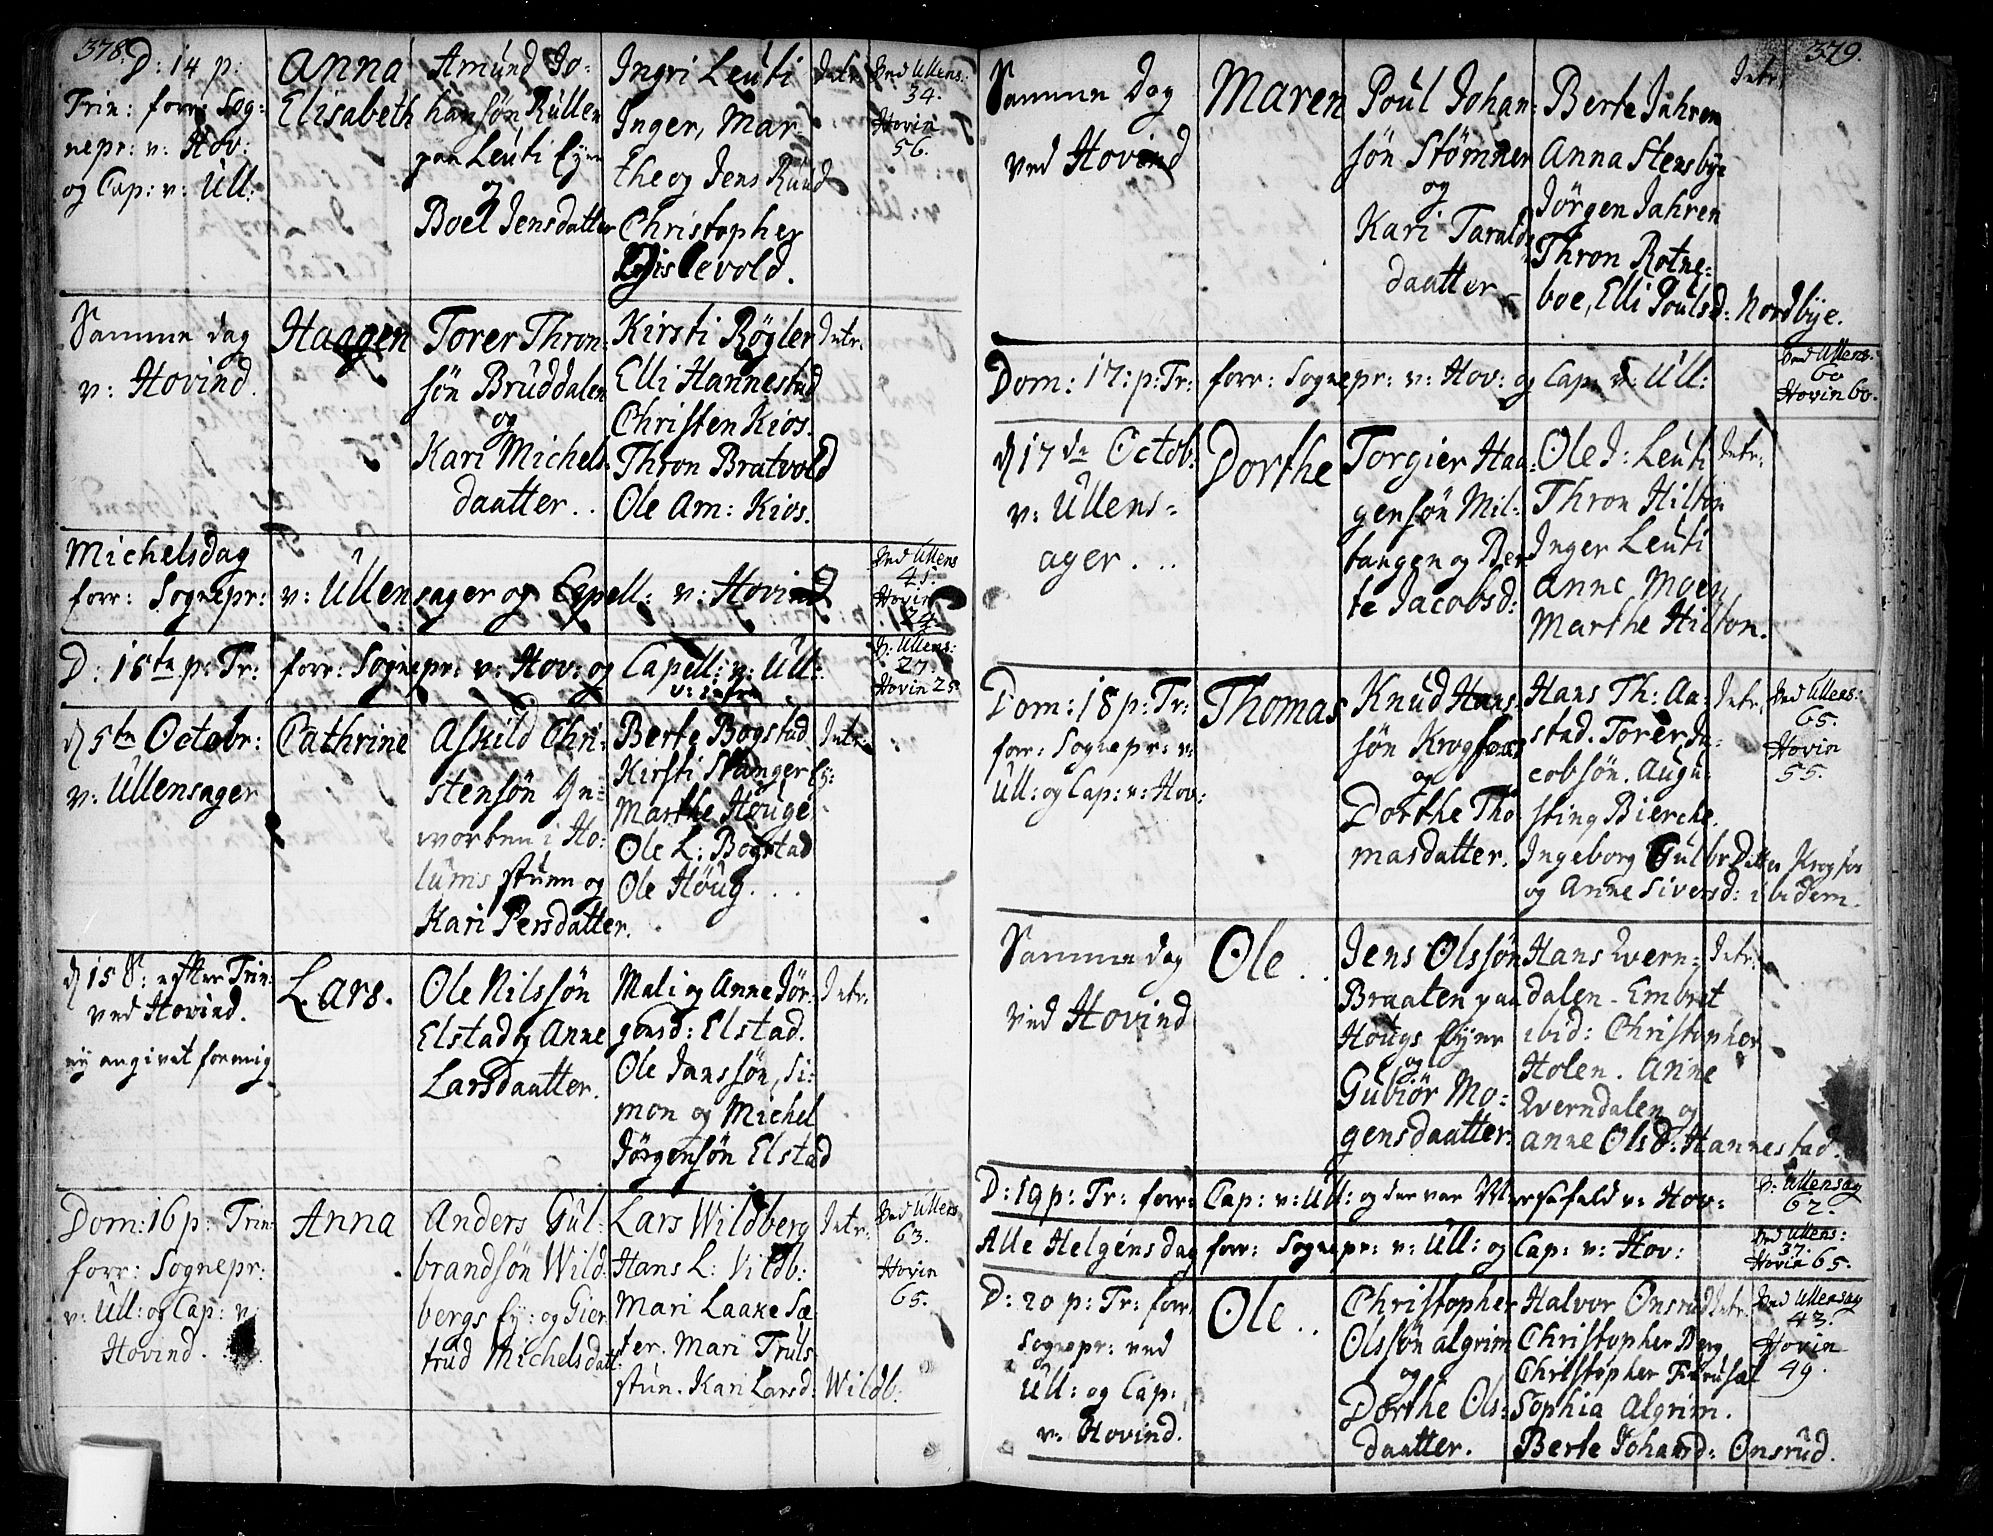 378.
D: 14 p:
Trin: forr: Sog:
nepr: v: Hov:
og Cap: v: Ull:
Anna
Elisabeth
Amund Jo:
hansøn Rullen
paa Leuti Eyer
og
Boel Jensdatter
Ingri Leuti
Inger, Mar:
the og Jens Ruud
Christopher
Intr:
Ved Ullens:
34.
Hovin
56.
Samme dag
v: Hovind.
Haagen
Torer Thron:
søn Bruddalen
og
Kari Michels
daatter.
Kirsti Røgler
Elli Hannestad
Christen Kios.
Thron Bratvold
Ole Am: Kios.
Intr:
Michelsdag
forr: Sognepr: v: Ullensager og Capell: v: Hovind
Ved Ullens
45.
Hovin
24.
D: 15te p: Tr: forr: Sognepr: v: Hov: og Capell: v: Ull:
v: Ullens:
27.
Hovin 25
d 5te Octobr:
v: Ullensager
Cathrine
Askild Chri:
stensøn Gn=
worten i Ho:
lums stuen og
Kari Persdatter.
Berte Bogstad
Kirsti Stanger Ey:
Marthe Houge
Ole L: Bogstad
Ole Høug.
Intr:
d 15 S: efter Trin:
ved Hovind.
ey angivet for mig
Lars.
Ole Nilssøn
Elstad og Anne
Larsdaatter.
Mali og Anne Jør:
gensd: Elstad.
Ole Janssøn, Si:
mon og Michel
Jørgensøn Elstad
Intr:
Dom: 16 p: Trin:
forr: Sognepr:
v: Ull: og Cap: v:
Hovind.
Anna
Anders Gul:
brandsøn Wild:
bergs Ey: og Gier
trud Michelsdatt:
Lars Wildberg
Hans L: Vildb:
Mari Laake Sæ
ter. Mari Truls
stun. Kari Larsd: Wildb:
Intr:
Ved Ullens
63.
Hovin
65.
379.
Samme Dag
ved Hovind
Maren
Poul Johan:
søn Stømner
og
Kari Taralds
daatter
Berte Jahren
Anna Stensbye
Jørgen Jahren
Thron Rotne:
boe, Elli Poulsd: Nordbye.
Intr:
Dom: 17: p: Tr: forr: Sognepr: v: Hov: og Cap: v: Ull:
Ved Ullens:
60
Hovin 60.
d 17de Octob:
v: Ullens=
ager.
Dorthe
Torgier Haa:
gensøn Mil:
tangen og Ber
te Jacobsd:
Ole J: Leuti
Thron Hilton
Inger Leuti
Anne Moen
Marthe Hilton.
Intr:
Dom: 18 p: Tr:
forr: Sognepr: v:
Ull: og Cap: v: Hov:
Thomas
Knud Hans:
søn Krogfoss
og
Dorthe Tho
masdatter.
Hans Th: Aa:
stad. Torer Ja:
cobsøn. Augu:
sting Bierche.
Ingeborg Gulbr Datter Krogfos
og Anne Siversd: ibidem.
Intr:
Ved Ullens:
65.
Hovin
55.
Samme dag
ved Hovind
Ole
Jens Olssøn
Braaten paa
Hougs Eyer
og
Gubiør Mo:
gensdaatter:
Hans Qvern:
dalen. Embret
ibid: Christopher
Holen. Anne
Qverndalen og
Anne Olsd: Hannestad.
Intr:
D: 19 p: Tr: forr: Cap: v: Ull: og der var Messefald v: Hov:
v: Ullensag
62.
Alle Helgens dag forr: Sognepr: v: Ull: og Cap: v: Hov:
Ved Ullens:
37.
Hovin 65.
D: 20 p: Tr: forr:
Sognepr: ved
Ull: og Cap:
v: Hovind.
Ole
Christopher
Olssøn Algrim
og
Dorthe Ols:
daatter.
Halvor Onsrud
Christopher Berg
Christopher
Sophia Algrim.
Berte Johansd: Onsrud.
Intr:
Ved Ullensag
43.
Hovin
49.